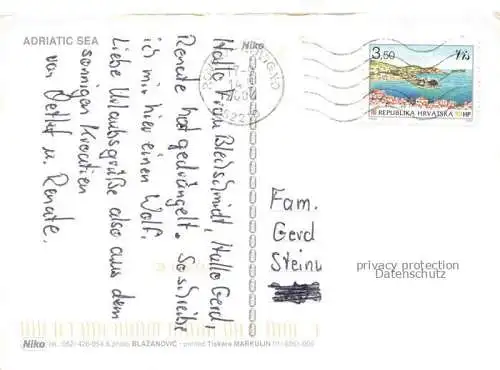 ADRIATIC SEA
Niko
Hallo Frau Bleischmidt, Hallo Gerd,
Renate hat gedrängelt. So schreibe
ich mir hier einen Wolf.
Liebe Urlaubsgrüße also aus dem
sonnigen Kroatien
von Detlef u. Renate.
3,50
REPUBLIKA HRVATSKA HP
52210
Fam.
Gerd
Stein
privacy protection
Datenschutz
Niko tel. 052/426-054 & photo BLAŽANOVIĆ - printed Tiskara MARKULIN